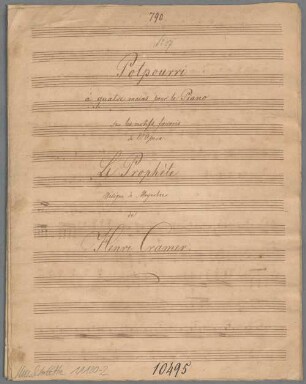 790.
Potpourri
à quatre mains pour le Piano
sur les motifs favoris
de l'Opéra
Le Prophète
Musique de Meyerbeer
de
Henri Cramer.
10495